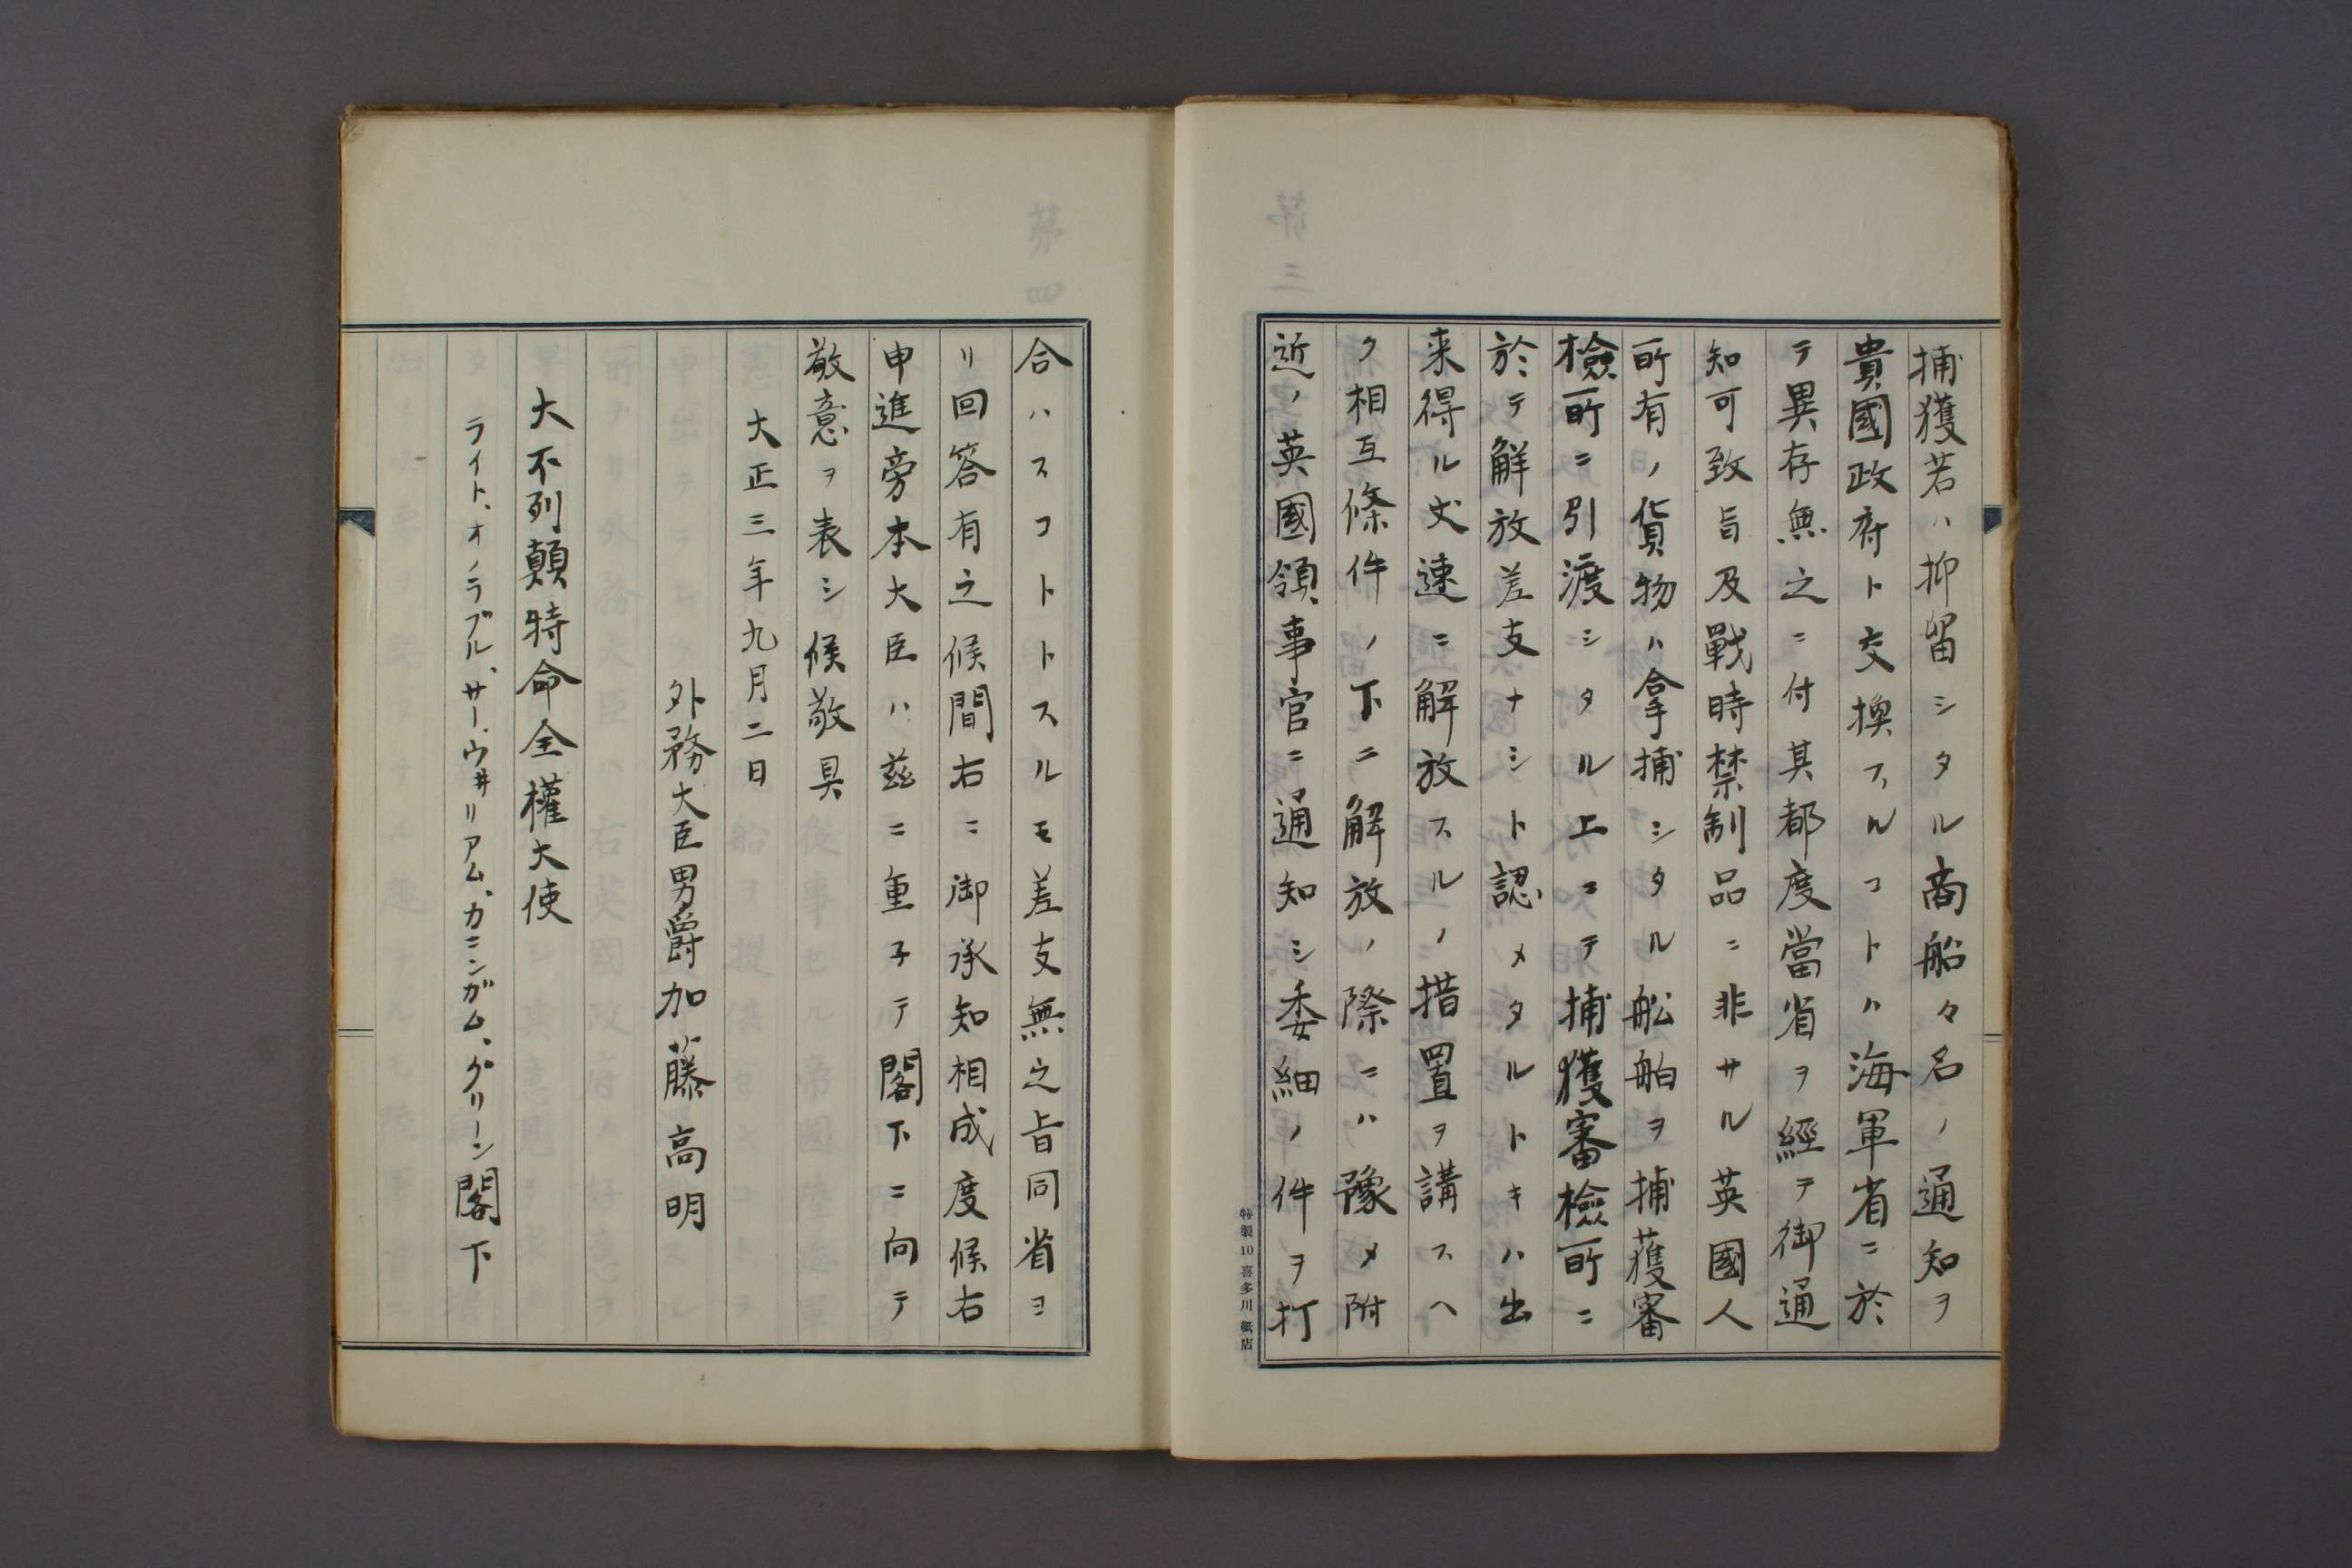 捕獲若ハ抑留シタル商船々名ノ通知ヲ
貴國政府ト交換スルコトハ海軍省ニ於
テ異存無之ニ付其都度當省ヲ経テ御通
知可致旨及戰時禁制品ニ非サル英國人
所有ノ貨物ハ拿捕シタル船舶ヲ捕獲審
檢所ニ引渡シタル上コテ捕獲審檢所ニ
於テ解放差支ナシト認メタルトキハ出
来得ル丈速ニ解放スルノ措置ヲ講スヘ
ク相互條件ノ下ニ解放ノ際ニハ豫メ附
近ノ英國領事官ニ通知シ委細ノ件ヲ打
特製10喜多川紙店
合ハスコトトスルモ差支無之旨同省ヨ
リ回答有之候間右ニ御承知相成度候右
申進旁本大臣ハ茲ニ重子テ閣下ニ向テ
敬意ヲ表シ候敬具
大正三年九月二日
外務大臣男爵加藤高明
大不列顛特命全權大使
ライト、オノラブル、サー、ウヰリアム、カニンガム、グリーン閣下
第三
第四